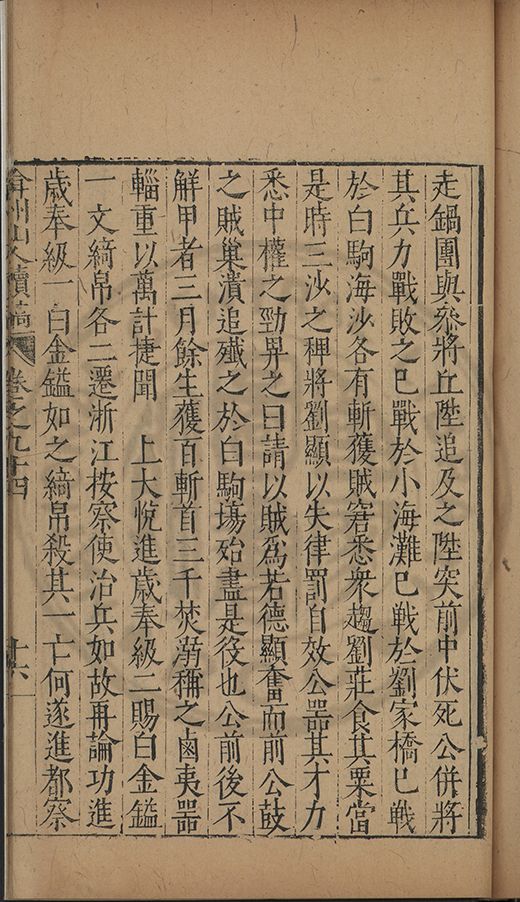 走鍋團與叅將丘陞追及之陞突前中伏死公併將
其兵力戰敗之巳戰於小海灘巳戰於劉家橋巳戰
於白駒海沙各有斬獲賊窘悉衆趨劉莊食其粟當
是時三沙之稗將劉顯以失律罰自效公器其才力
悉中權之勁畀之曰請以賊為若德顯奮而前公鼓
之賊巢潰追殱之於白駒塲殆盡是役也公前後不
解甲者三月餘生獲百斬首三千焚溺稱之鹵夷器
輜重以萬計捷聞　上大悅進歲奉級二賜白金鎰
一文綺帛各二遷浙江按察使治兵如故再論功進
歲奉級一白金鎰如之綺帛殺其一亡何遂進都察
弇州山人續稿　卷之九十四　十六